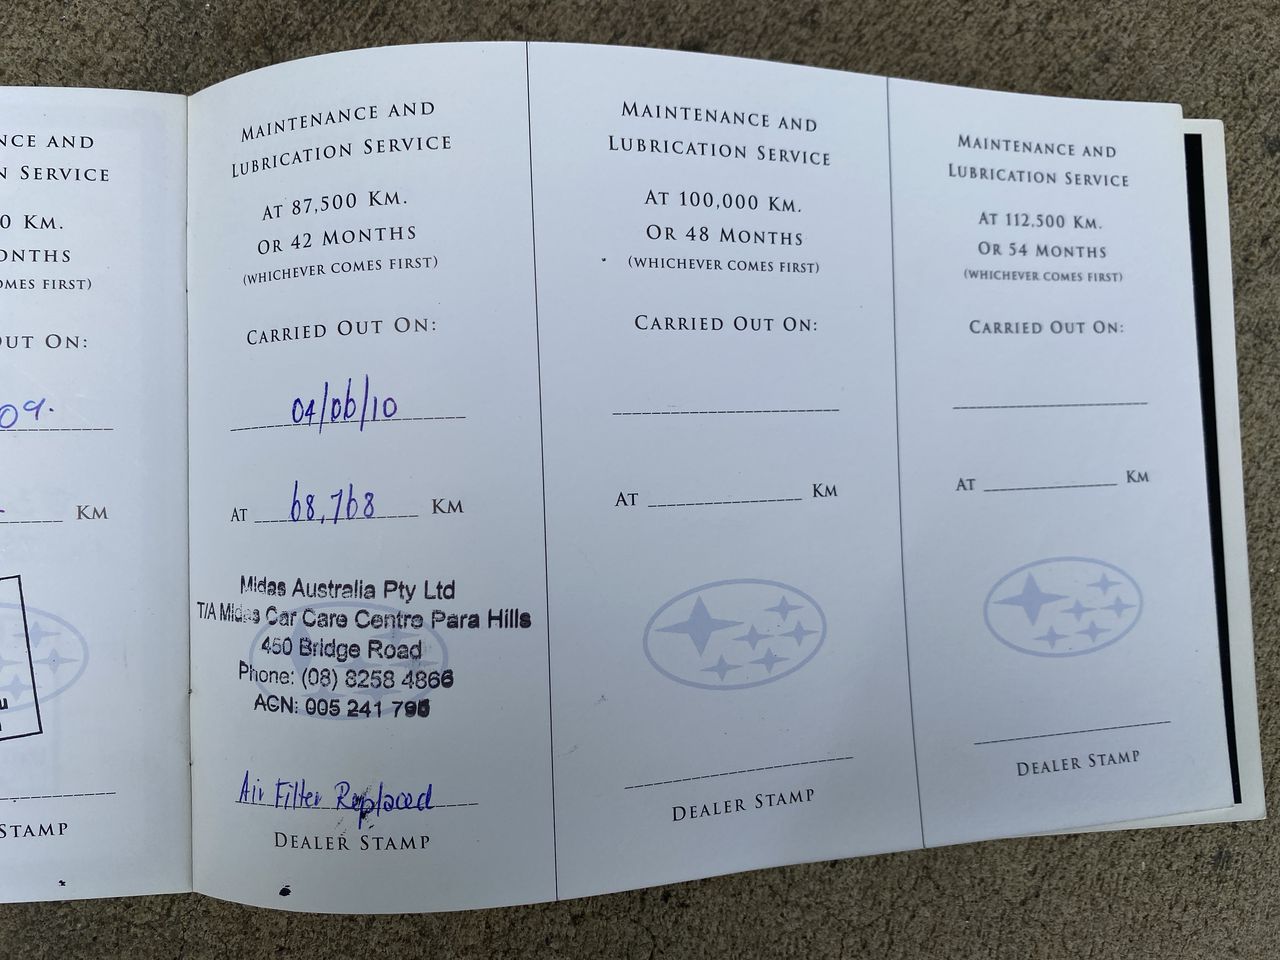 NCE AND
N SERVICE
0 KM.
ONTHS
OMES FIRST)
OUT ON:
09.
KM
STAMP
MAINTENANCE AND
LUBRICATION SERVICE
AT 87,500 KM.
OR 42 MONTHS
(WHICHEVER COMES FIRST)
CARRIED OUT ON:
04/06/10
AT 68,768 KM
Midas Australia Pty Ltd
T/A Midas Car Care Centre Para Hills
450 Bridge Road
Phone: (08) 8258 4866
ACN: 005 241 795
Air Filter Replaced
DEALER STAMP
MAINTENANCE AND
LUBRICATION SERVICE
AT 100,000 KM.
OR 48 MONTHS
(WHICHEVER COMES FIRST)
CARRIED OUT ON:
AT KM
DEALER STAMP
MAINTENANCE AND
LUBRICATION SERVICE
AT 112,500 KM.
OR 54 MONTHS
(WHICHEVER COMES FIRST)
CARRIED OUT ON:
AT KM
DEALER STAMP